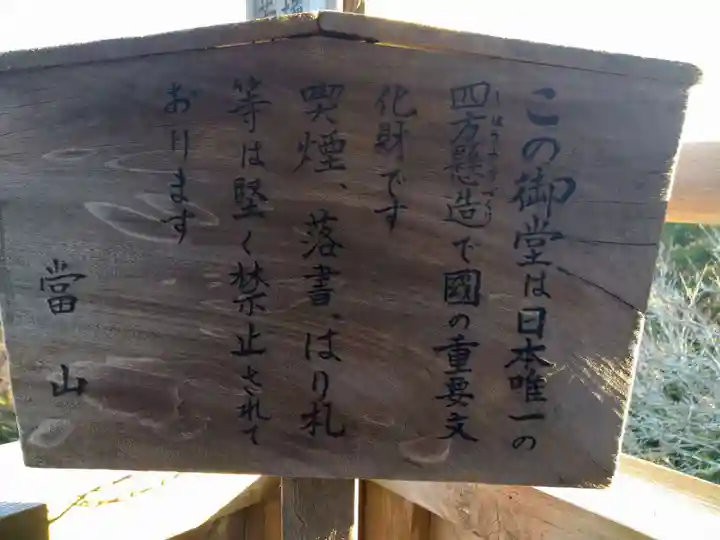 この御堂は日本唯一の
四方懸造で國の重要文
化財です
喫煙、落書、はり札
等は堅く禁止されて
おります
當山